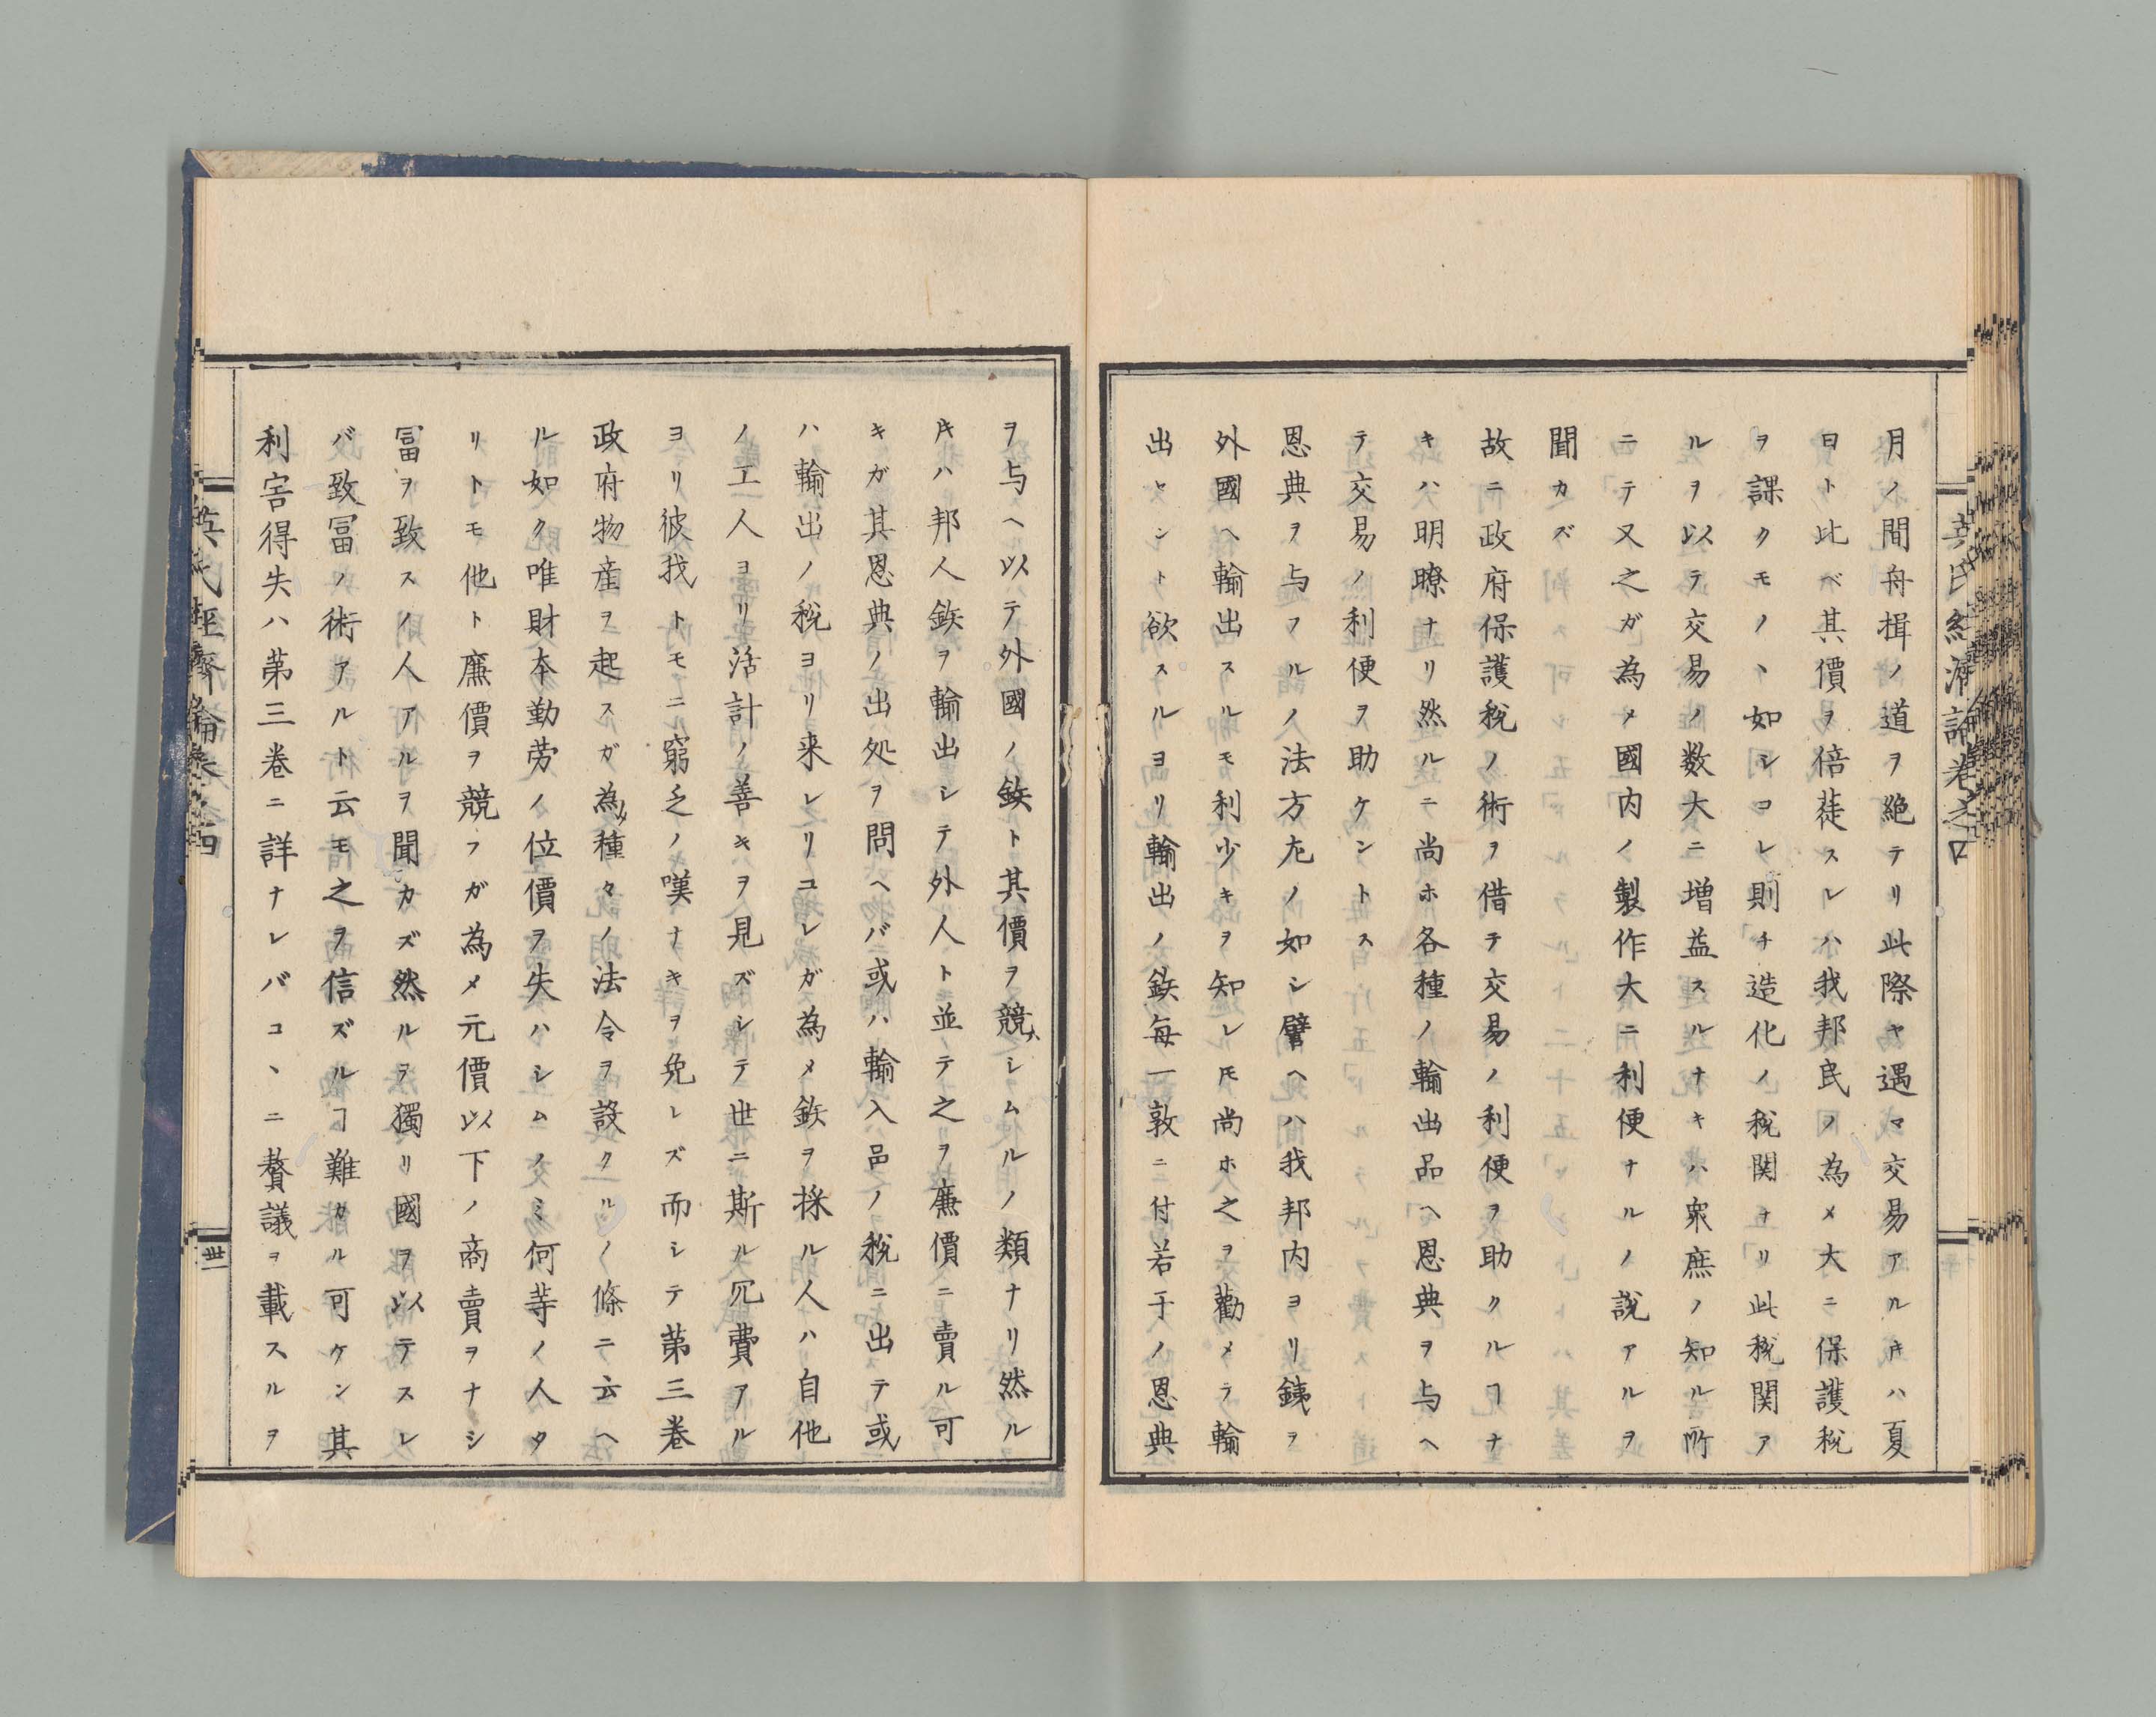 英氏経済論巻之四
月ノ間舟揖ノ道ヲ絶テリ此際ヤ遇マ交易アルキハ夏
日ト此ベ其價ヲ倍蓰スレハ我邦民ノ為メ大ニ保護税
ヲ課クモノヽ如シコレ則チ造化ノ税関ナリ此税関ア
ルヲ以テ交易ノ数大ニ増益スルナキハ衆庶ノ知ル所
ニテ又之ガ為メ國内ノ製作大ニ利便ナルノ説アルヲ
聞カズ
故ニ政府保護税ノ術ヲ借テ交易ノ利便ヲ助クルヿナ
キハ明瞭ナリ然ルニ尚ホ各種ノ輸出品ヘ恩典ヲ与ヘ
テ交易ノ利便ヲ助ケントス
恩典ヲ与フルノ法方尤ノ如シ譬ヘハ我邦内ヨリ銕ヲ
外國ヘ輸出スルモ利少キヲ知レ𪜈尚ホ之ヲ勸メテ輸
出セシト欲スルヨリ輸出ノ鉄毎一敦ニ付若干ノ恩典
ヲ与ヘ以テ外國ノ鉄ト其價ヲ競ハシムルノ類ナリ然ル
キハ邦人鉄ヲ輸出シテ外人ト並テ之ヲ廉價ニ賣ル可
キガ其恩典ノ出処ヲ問ヘバ或ハ輸入品ノ税ニ出テ或
ハ輸出ノ税ヨリ来レリコレガ為メ鉄ヲ採ル人ハ自他
ノ工人ヨリ活計ノ善キヲ見ズシテ世ニ斯ル冗費アル
ヨリ彼我トモニ窮乏ノ嘆ナキヲ免レズ而シテ第三巻
政府物産ヲ起スガ為メ種々ノ法令ヲ設クルノ條ニ云ヘ
ル如ク唯財本勤労ノ位價ヲ失ハシムノミ何等ノ人タ
リトモ他ト廉價ヲ競フガ為メ元價以下ノ商賣ヲナシ
冨ヲ致スノ人アルヲ聞カズ然ルヲ獨リ國ヲ以テスレ
バ致冨ノ術アルト云モ之ヲ信ズルヿ難カル可ケン其
利害得失ハ第三巻ニ詳ナレバコヽニ贅議ヲ載スルヲ
英氏経済論巻之四
丗一